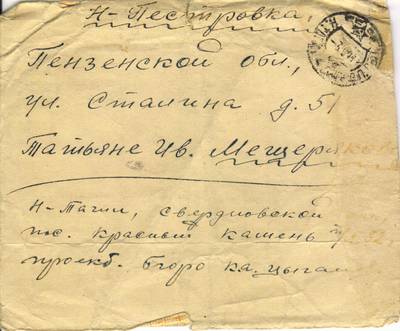 Н-Пестровка,
Пензенской обл.,
ул. Сталина д. 51
Татьяне Ив. Мещеряковой
Н-Тагил, свердловской
пос. красный камень
проект. бюро